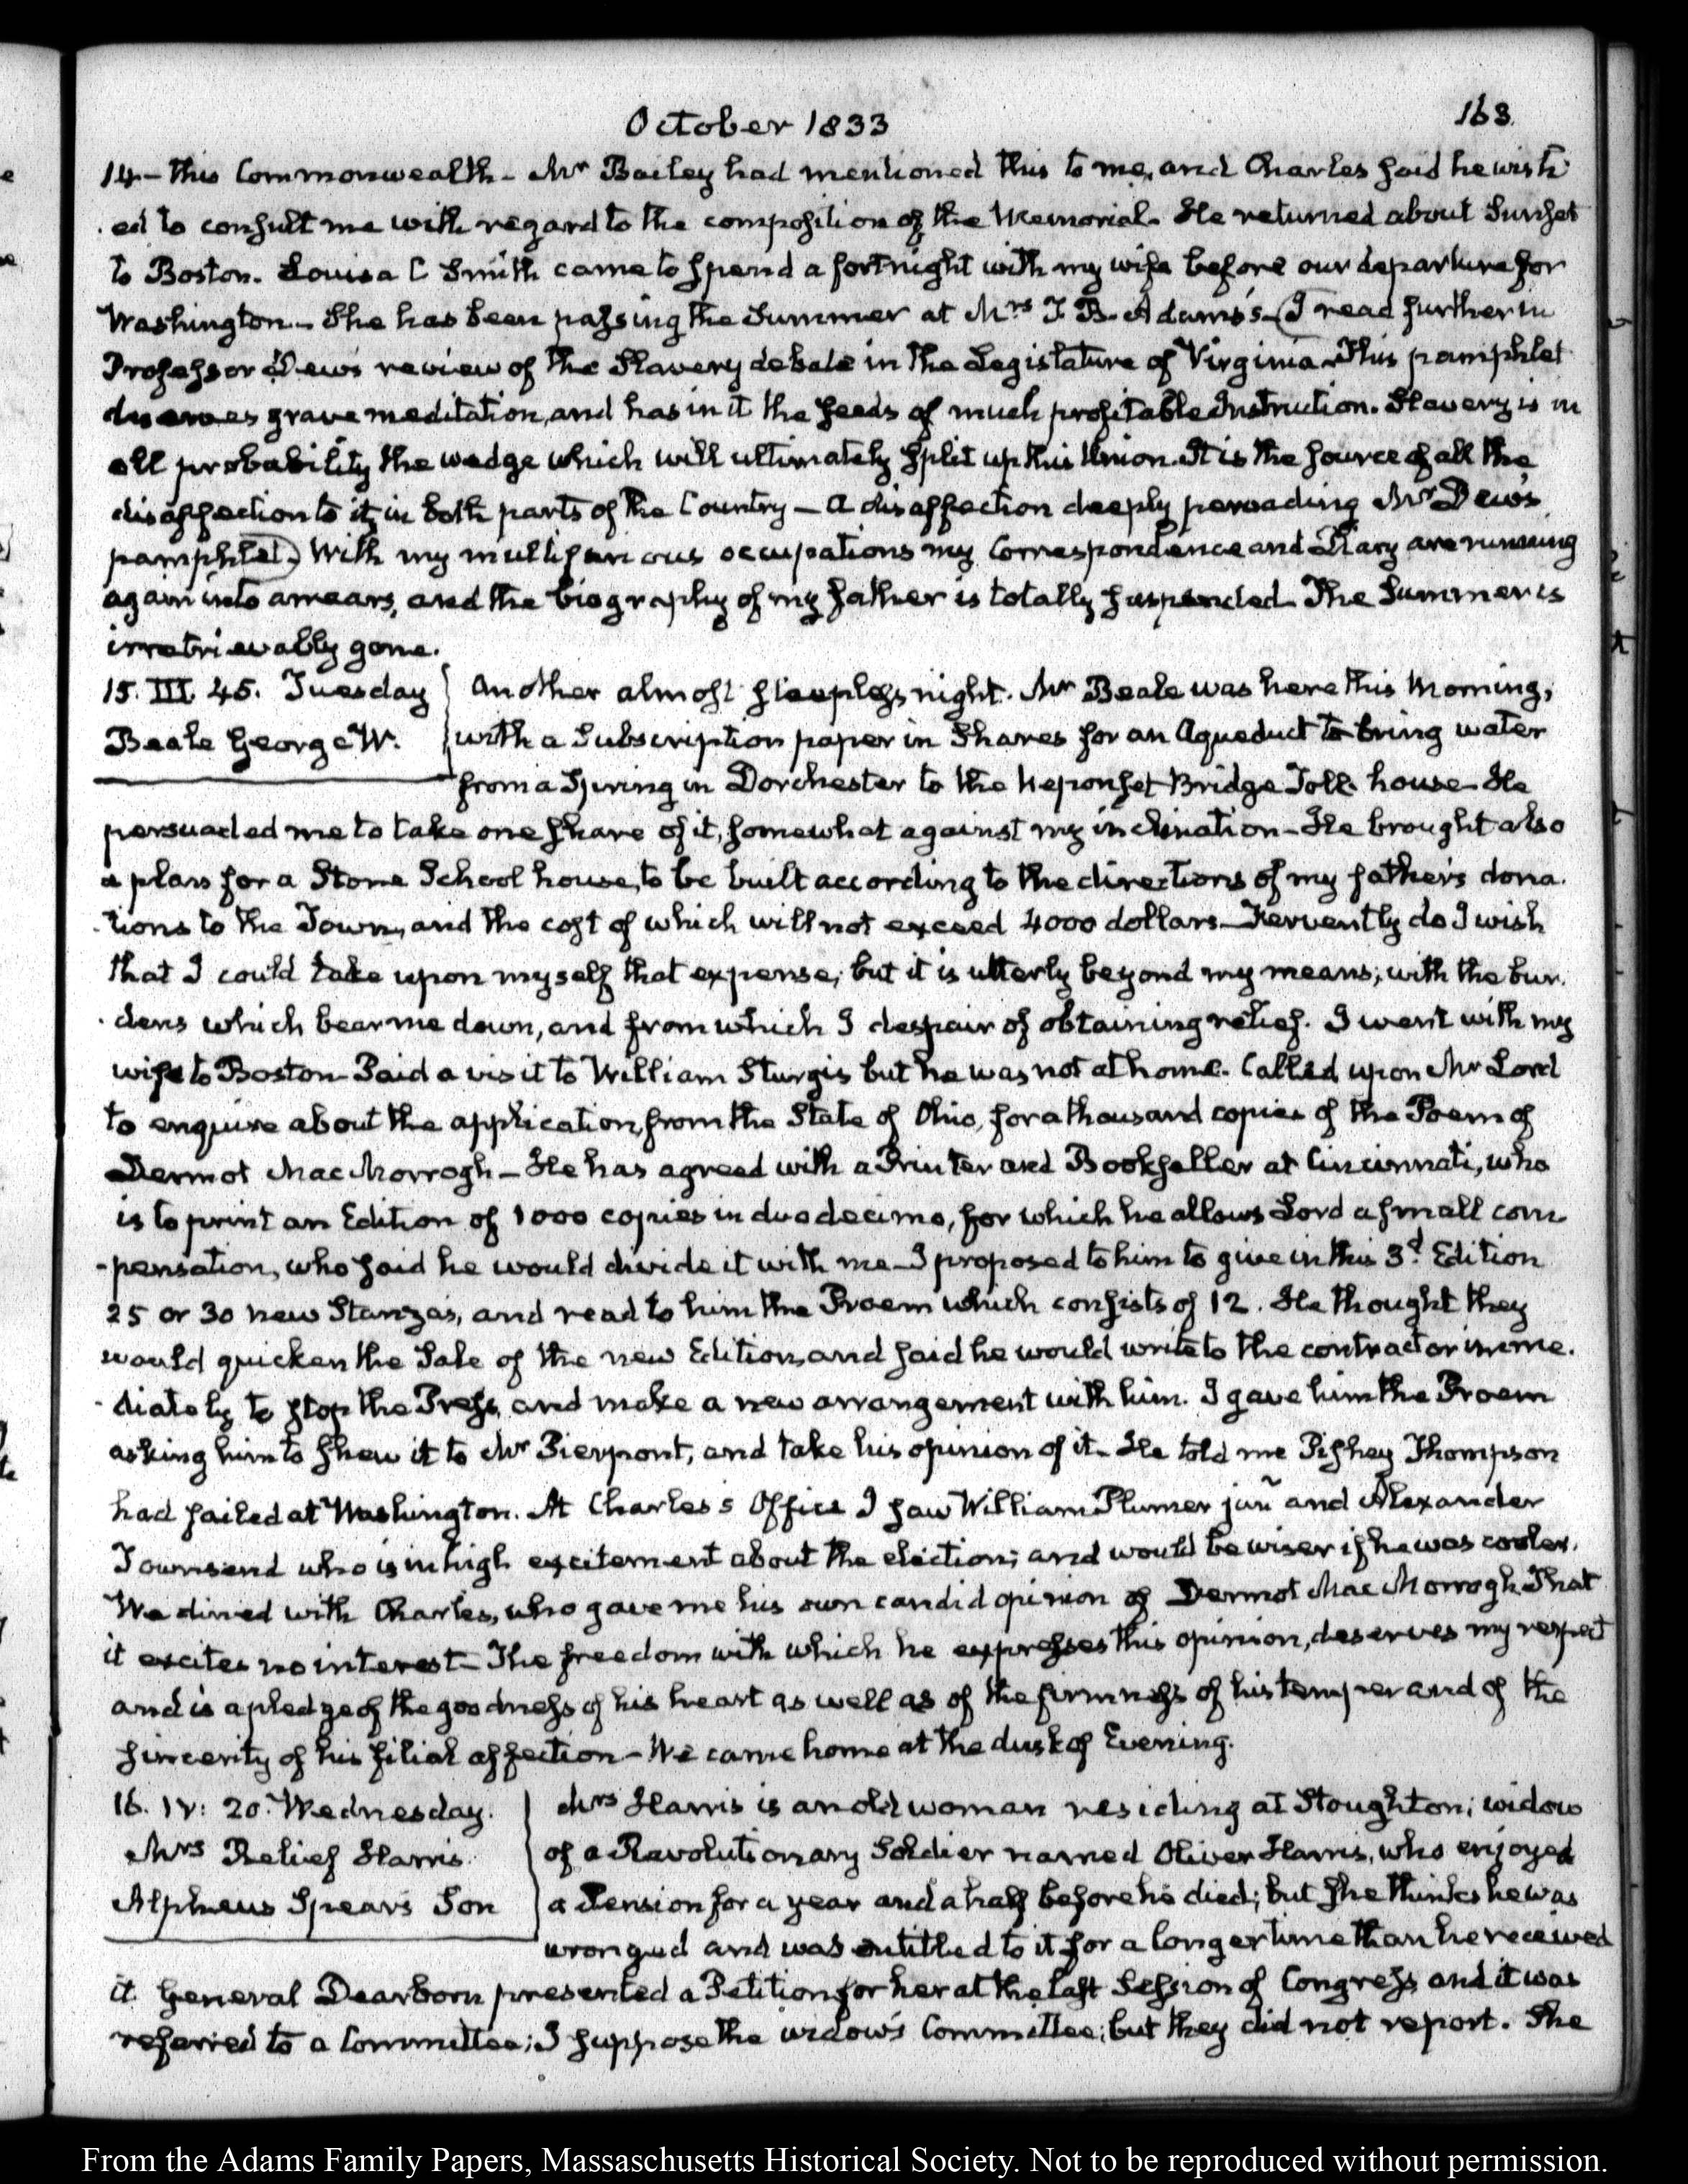 October 1833
163.
14 - this Commonwealth - Mr Bailey had mentioned this to me, and Charles said he wish-
ed to consult me with regard to the composition of the Memorial. He returned about Sunset
to Boston. Louisa C Smith came to spend a fortnight with my wife before our departure for
Washington - She has been passing the Summer at Mrs T. B. Adams's - (I read further in
Professor Dew's review of the Slavery debate in the Legislature of Virginia - This pamphlet
deserves grave meditation, and has in it the seeds of much profitable Instruction. Slavery is in
all probability the wedge which will ultimately split up this Union. It is the source of all the
disaffection to it, in both parts of the Country - a disaffection deeply pervading Mr Dew's
pamphlet.) With my multifarious occupations my Correspondence and Diary are running
again into arrears, and the biography of my father is totally suspended. The Summer is
irretrievably gone.
15. III. 45. Tuesday
Beale George W.
Another almost sleepless night. Mr Beale was here this Morning,
with a Subscription paper in Shares for an Aqueduct to bring water
from a Spring in Dorchester to the Neponset Bridge Toll-house - He
persuaded me to take one share of it, somewhat against my inclination - He brought also
a plan for a Stone School house, to be built according to the directions of my father's dona-
tions to the Town, and the cost of which will not exceed 4000 dollars - Fervently do I wish
that I could take upon myself that expense; but it is utterly beyond my means; with the bur-
dens which bear me down, and from which I despair of obtaining relief. I went with my
wife to Boston - Paid a visit to William Sturgis but he was not at home. Called upon Mr Lord
to enquire about the application, from the State of Ohio, for a thousand copies of the Poem of
Dermot Mac Morrogh - He has agreed with a Printer and Bookseller at Cincinnati, who
is to print an Edition of 1000 copies in duodecimo, for which he allows Lord a small com-
-pensation, who said he would divide it with me - I proposed to him to give in this 3d. Edition
25 or 30 new Stanzas, and read to him the Proem which consists of 12. He thought they
would quicken the Sale of the new Edition, and said he would write to the contractor imme-
diately to stop the Press, and make a new arrangement with him. I gave him the Proem
asking him to shew it to Mr Pierpont, and take his opinion of it - He told me Pishey Thompson
had failed at Washington. At Charles's Office I saw William Plumer junr and Alexander
Townsend who is in high excitement about the election; and would be wiser if he was cooler.
We dined with Charles, who gave me his own candid opinion of Dermot Mac Morrogh. That
it excites no interest - The freedom with which he expresses this opinion, deserves my respect
and is a pledge of the goodness of his heart as well as of the firmness of his temper and of the
sincerity of his filial affection - We came home at the dusk of Evening.
16. IV: 20. Wednesday.
Mrs Relief Harris.
Alpheus Spears Son
Mrs Harris is an old woman residing at Stoughton; widow
of a Revolutionary Soldier named Oliver Harris, who enjoyed
a Pension for a year and a half before he died; but she thinks he was
wronged and was entitled to it for a longer time than he received
it. General Dearborn presented a Petition for her at the last Session of Congress and it was
referred to a Committee; I suppose the widow's Committee; but they did not report. She
From the Adams Family Papers, Massachusetts Historical Society. Not to be reproduced without permission.